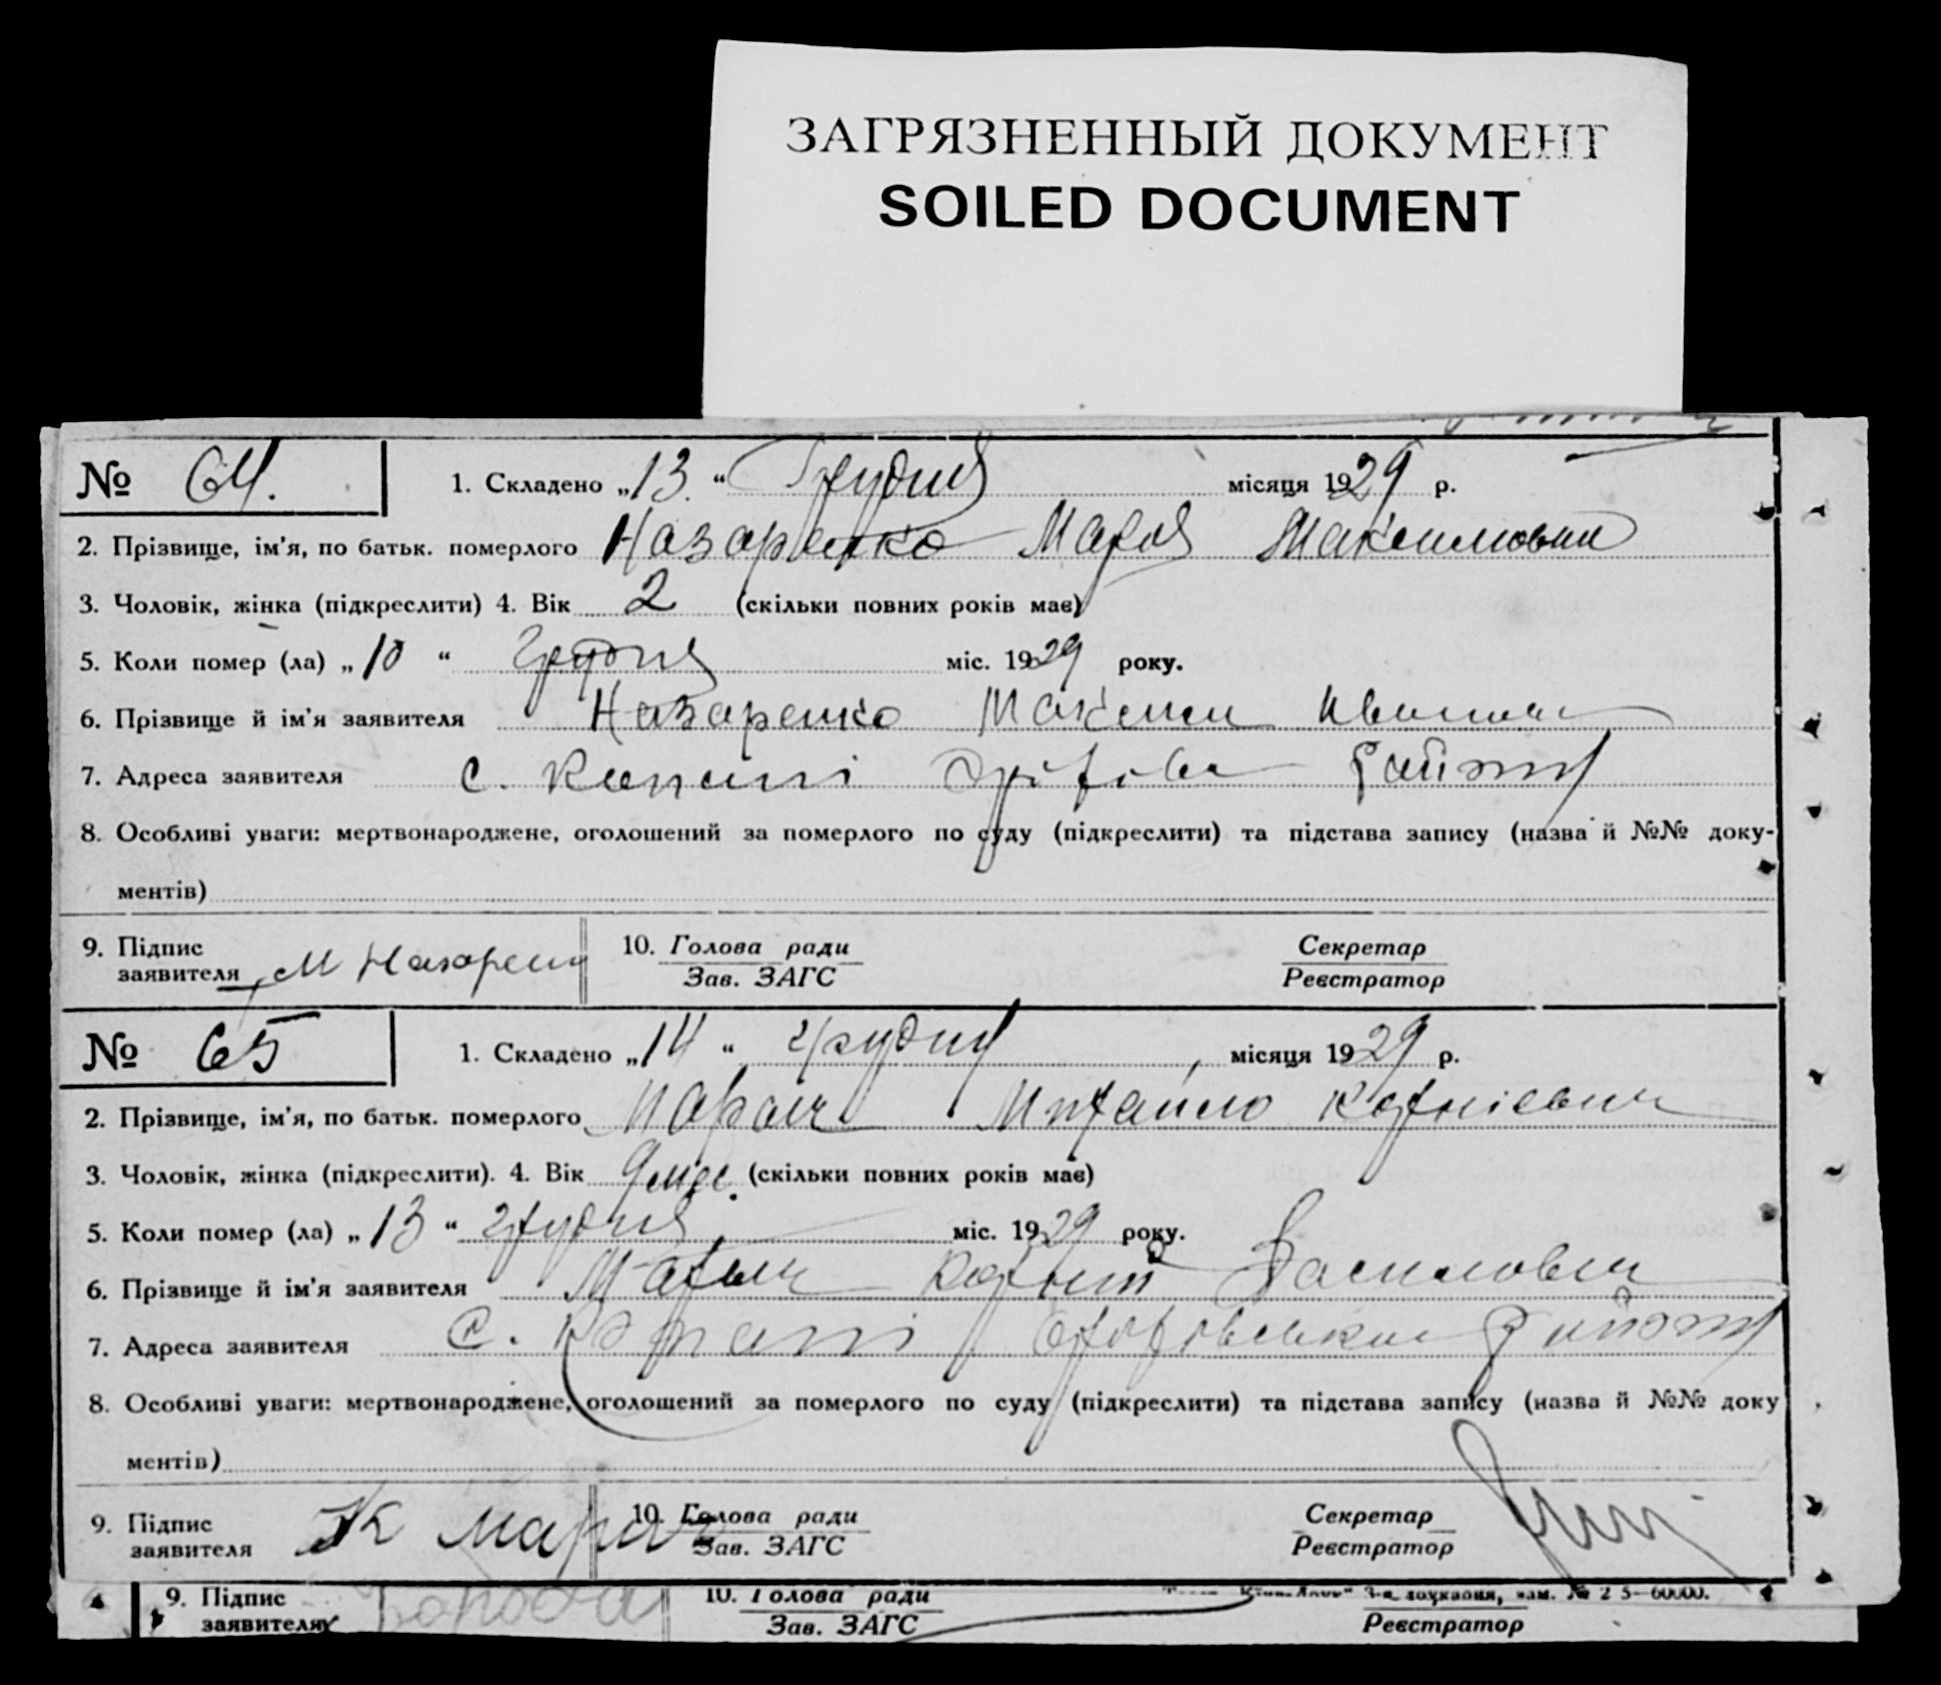 ЗАГРЯЗНЕННЫЙ ДОКУМЕНТ
SOILED DOCUMENT
№ 64. 1. Складено „13“ Грудня місяця 1929 р.
2. Прізвище, ім'я, по батьк. померлого Назаренко Марія Максимовни
3. Чоловік, жінка (підкреслити) 4. Вік 2 (скільки повних років має)
5. Коли помер (ла) „10“ Грудня міс. 1929 року.
6. Прізвище й ім'я заявителя Назаренко Максим
7. Адреса заявителя с. Копані
8. Особливі уваги: мертвонароджене, оголошений за померлого по суду (підкреслити) та підстава запису (назва й №№ доку-
ментів)
9. Підпис
заявителя М Назарен
10. Голова ради
Зав. ЗАГС
Секретар
Реєстратор
№ 65 1. Складено „14“ грудня місяця 1929 р.
2. Прізвище, ім'я, по батьк. померлого Михайло Корнієвич
3. Чоловік, жінка (підкреслити). 4. Вік 9 міс. (скільки повних років має)
5. Коли помер (ла) „13“ грудня міс. 1929 року.
6. Прізвище й ім'я заявителя Корній Василович
7. Адреса заявителя с. Копані
8. Особливі уваги: мертвонароджене, оголошений за померлого по суду (підкреслити) та підстава запису (назва й №№ доку
ментів)
9. Підпис
заявителя К
10. Голова ради
Зав. ЗАГС
Секретар
Реєстратор
9. Підпис
заявителя
10. Голова ради
Зав. ЗАГС
Реєстратор